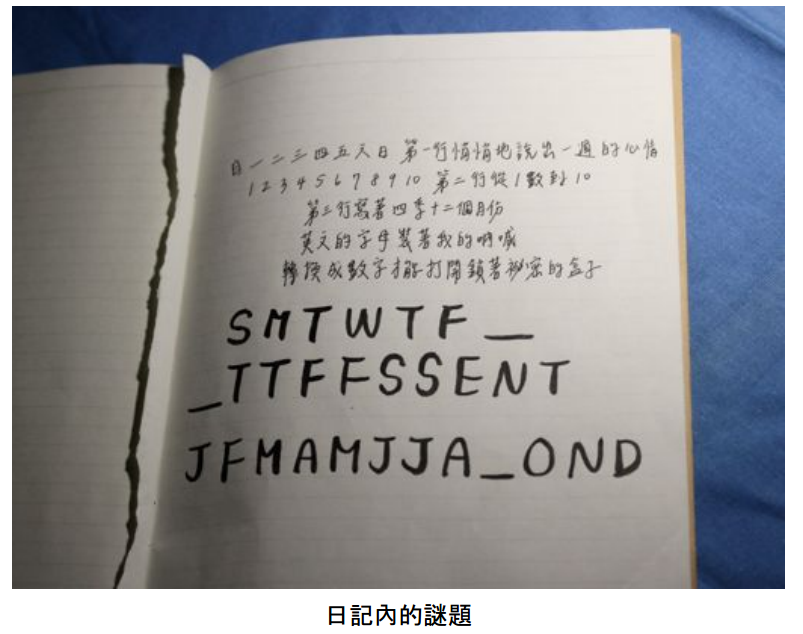 日一二三四五六日 第一行悄悄地說出一週的心情
1 2 3 4 5 6 7 8 9 10 第二行從1數到10
第三行寫著四季十二個月份
英文的字母裝著我的吶喊
轉換成數字才能打開鎖著祕密的盒子
SMTWTF_
_TTFFSSENT
JFMAMJJA_OND
日記內的謎題